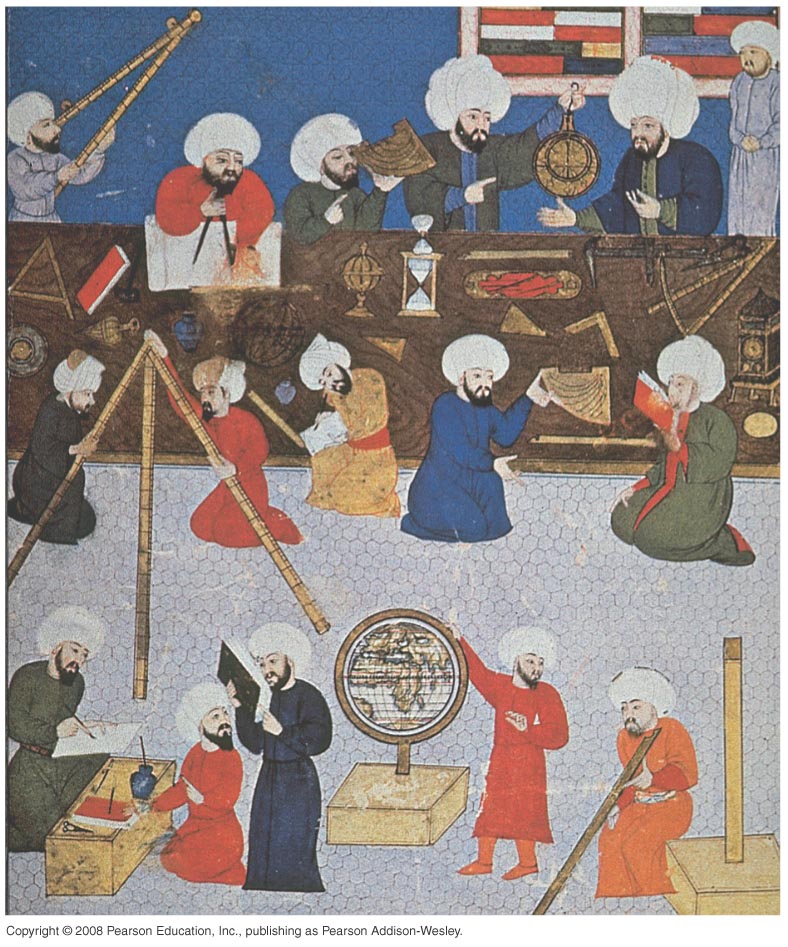 Copyright © 2008 Pearson Education, Inc., publishing as Pearson Addison-Wesley.